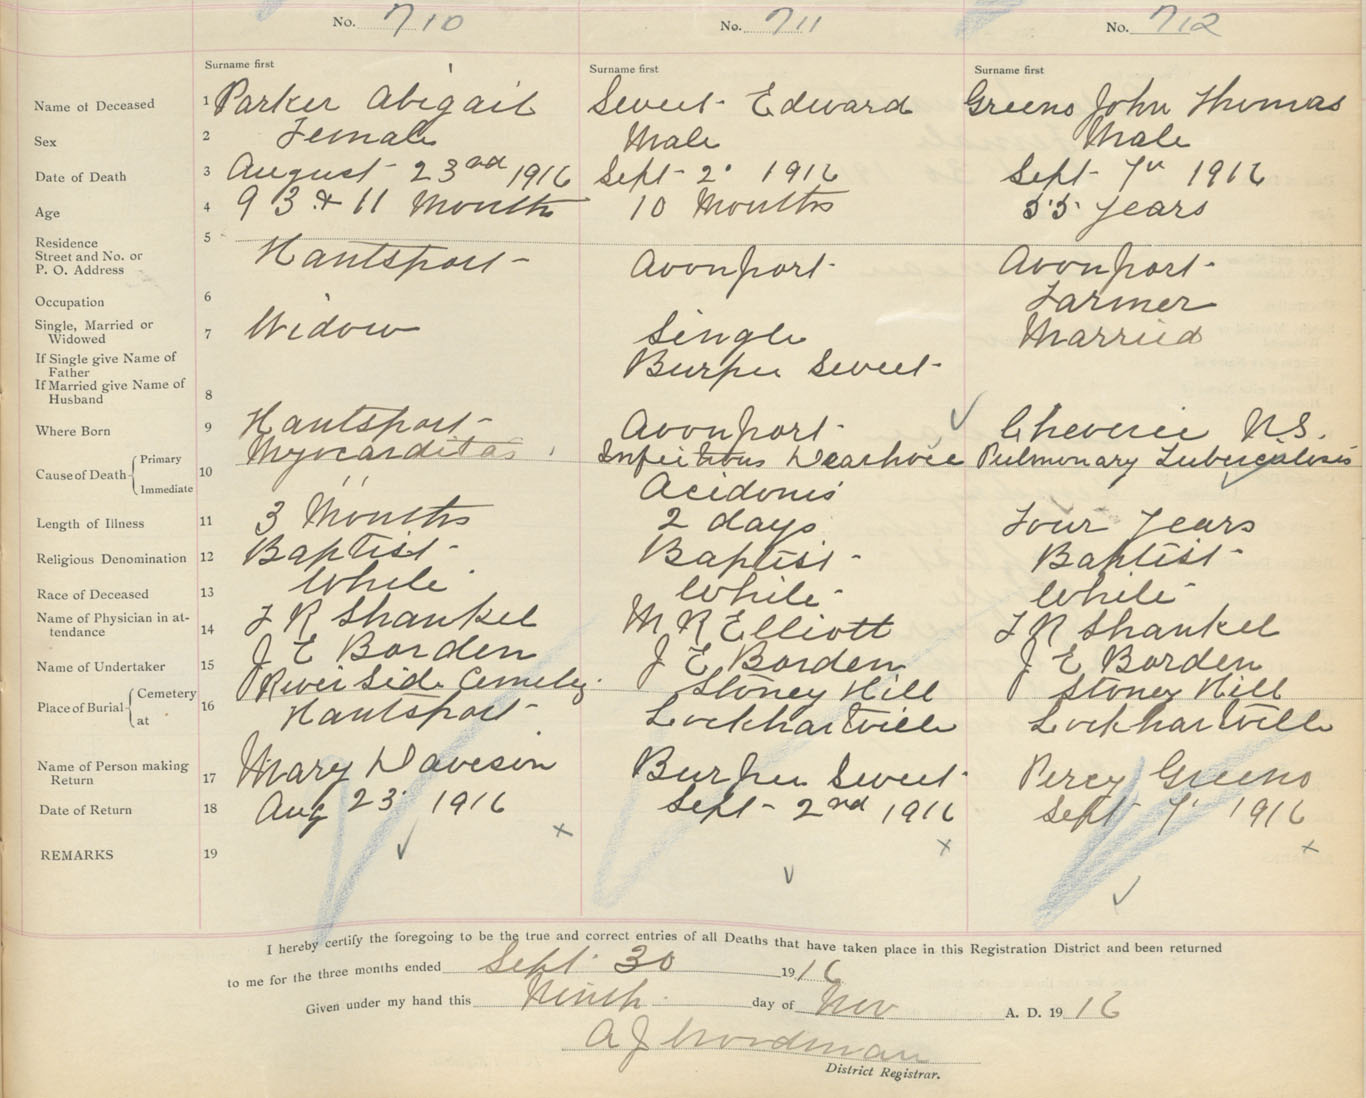 No. 710 No. 711 No. 712
Surname first Surname first Surname first
Name of Deceased 1 Parker Abigail Sweet Edward Greeno John Thomas
Sex 2 Female Male Male
Date of Death 3 August 23rd 1916 Sept 2 1916 Sept 7th 1916
Age 4 93 & 11 Months 10 Months 55 years
Residence
Street and No. or
P. O. Address 5 Hantsport Avonport Avonport
Occupation 6 Farmer
Single, Married or
Widowed 7 Widow Single Married
If Single give Name of
Father Burpee Sweet
If Married give Name of
Husband 8
Where Born 9 Hantsport Avonport Cheverie N.S.
Cause of Death Primary 10 Myocarditas Infectious Diarhoea Pulmonary Tuberculosis
Immediate " Acidonis
Length of Illness 11 3 Months 2 days Four Years
Religious Denomination 12 Baptist Baptist Baptist
Race of Deceased 13 White White White
Name of Physician in at-
tendance 14 F R Shankel M R Elliott F R Shankel
Name of Undertaker 15 J E Borden J E Borden J E Borden
Place of Burial Cemetery 16 River Side Cemetery Stoney Hill Stoney Hill
at Hantsport Lockhartville Lockhartville
Name of Person making
Return 17 Mary Daveson Burpee Sweet Percy Greeno
Date of Return 18 Aug 23 1916 Sept 2nd 1916 Sept 7 1916
REMARKS 19
I hereby certify the foregoing to be the true and correct entries of all Deaths that have taken place in this Registration District and been returned
to me for the three months ended Sept 30 1916
Given under my hand this Ninth day of Nov A. D. 1916
A J Woodman
District Registrar.